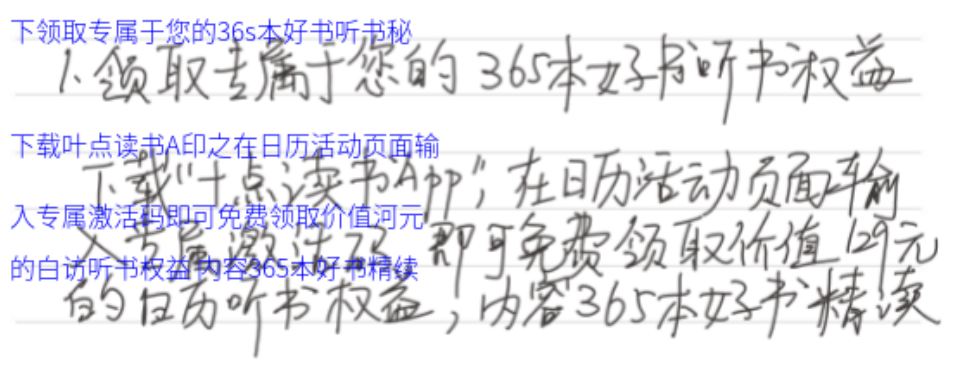 下领取专属于您的36s本好书听书秘
1.领取专属于您的365本好书听书权益
下载叶点读书A印之在日历活动页面输
下载“十点读书App”,在日历活动页面输
入专属激活码即可免费领取价值河元
入专属激活码 即可免费领取价值129元
的白访听书权益内容365本好书精续
的白历听书权益,内容365本好书精读